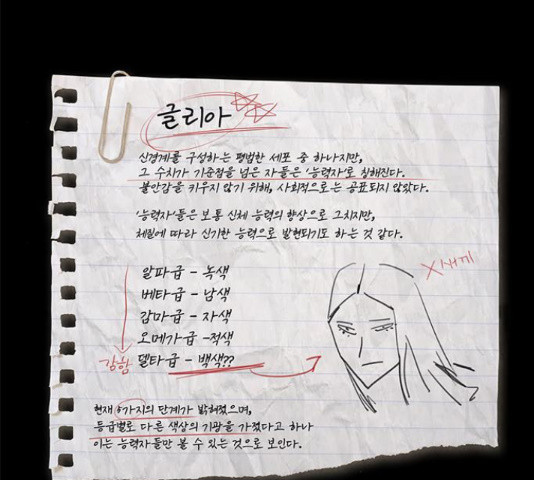 글리아
신경계를 구성하는 평범한 세포 중 하나지만,
그 수치가 기준점을 넘은 자들은 '능력자'로 칭해진다.
불안감을 키우지 않기 위해, 사회적으로는 공표되지 않았다.
'능력자'들은 보통 신체 능력의 향상으로 그치지만,
체질에 따라 신기한 능력으로 발현되기도 하는 것 같다.
알파급 - 녹색
베타급 - 남색
감마급 - 자색
오메가급 - 적색
델타급 - 백색??
강함
X새끼
현재 5가지의 단계가 밝혀졌으며,
등급별로 다른 색상의 기광을 가졌다고 하나
이는 능력자들만 볼 수 있는 것으로 보인다.